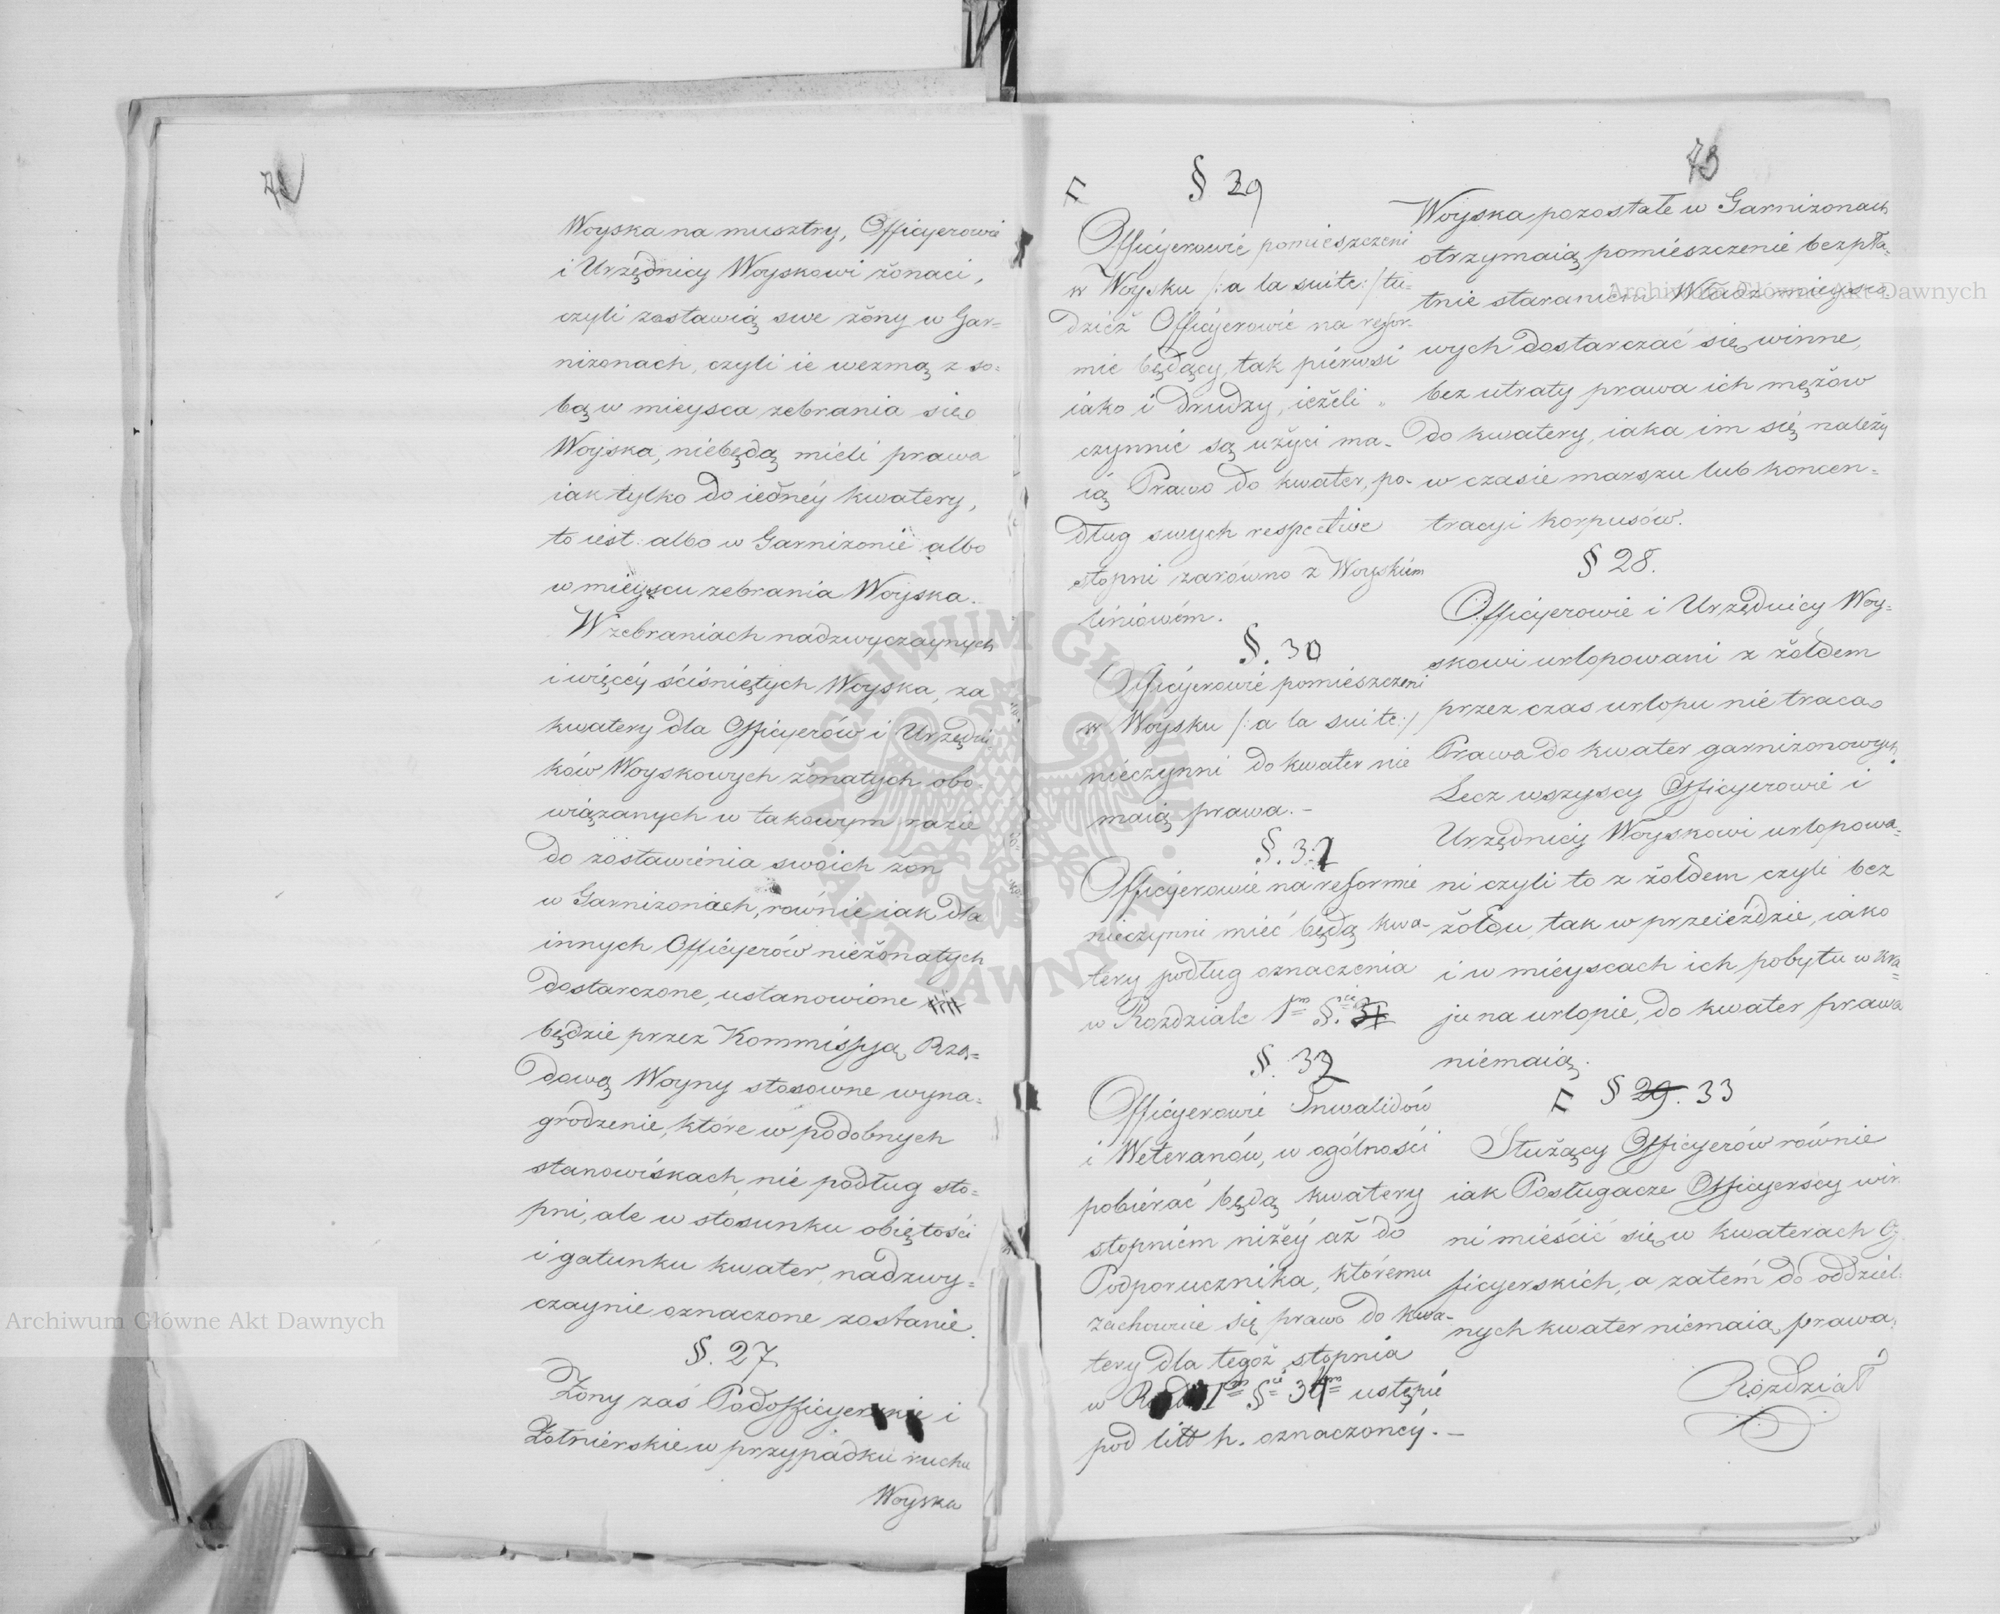 72
Woyska na musztry, Officyerowie
i Urzędnicy Woyskowi żonaci,
czyli zostawią swe żony w Gar=
nizonach, czyli ie wezmą z so=
bą w mieysca zebrania się
Woyska, niebędą mieli prawa
iak tylko do iednéy kwatery,
to iest: albo w Garnizonie albo
w mieyscu zebrania Woyska.
W zebraniach nadzwyczaynych
i więcéy ściśniętych Woyska, za
kwatery dla Officyerów i Urzędni
ków Woyskowych żonatych obo
wiązanych w takowym razie
do zostawienia swoich żon
w Garnizonach, równie iak dla
innych Officyerów nieżonatych
dostarczone, ustanowione
będzie przez Kommissyą Rzą=
dową Woyny stosowne wyna=
grodzenie, które w podobnych
stanowiskach, nie podług sto=
pni, ale w stosunku obiętości
i gatunku kwater, nadzwy=
czaynie oznaczone zostanie.
§. 27.
Żony zaś Podofficyerskie i
Żołnierskie w przypadku ruchu
Woyska
73
F § 29
Officyerowie pomieszczeni
w Woysku /: a la suite :/ tu=
dzież Officyerowie na refor=
mie będący, tak piérwsi
iako i drudzy, ieżeli
czynnie są użyci ma=
ią Prawo do kwater, po=
dług swych respective
stopni zarówno z Woyskiem
liniowém.
§. 30
Officyerowie pomieszczeni
w Woysku /: a la suite :/
nieczynni do kwater nie
maią prawa. –
§. 31
Officyerowie na reformie
nieczynni mieć będą kwa=
tery podług oznaczenia
w Rozdziale 1m §.
§. 32
Officyerowie Inwalidów
i Weteranów, w ogólności
pobierać będą kwatery
stopniem niżéy aż do
Podporucznika, któremu
zachowuie się prawo do kwa=
tery dla tegoż stopnia
w ustępie
pod litt h. oznaczonéy. –
Woyska pozostałe w Garnizonach
otrzymaią pomieszczenie bezpła=
tnie staraniem Władz mieysco
wych dostarczać się winne,
bez utraty prawa ich mężów
do kwatery, iaka im się należy
w czasie marszu lub koncen=
tracyi korpusów.
§ 28.
Officyerowie i Urzędnicy Woy=
skowi urlopowani z żołdem
przez czas urlopu nie tracą
Prawa do kwater garnizonowych.
Lecz wszyscy Officyerowie i
Urzędnicy Woyskowi urlopowa=
ni czyli to z żołdem czyli bez
żołdu, tak w przeieździe, iako
i w mieyscach ich pobytu w kra=
ju na urlopie, do kwater prawa
niemaią.
F § 29. 33
Służący Officyerów równie
iak Posługacze Officyerscy win
ni mieścić się w kwaterach Of
ficyerskich, a zatém do oddziel=
nych kwater niemaią prawa.
Rozdział
Archiwum Główne Akt Dawnych
Archiwum Główne Akt Dawnych
ARCHIWUM GŁÓWNE · AKT DAWNYCH ·